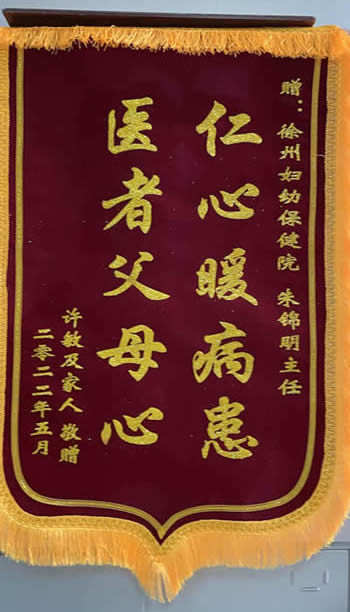 赠：徐州妇幼保健院 朱锦明主任
仁心暖病患
医者父母心
许敏及家人 敬赠
二零二二年五月